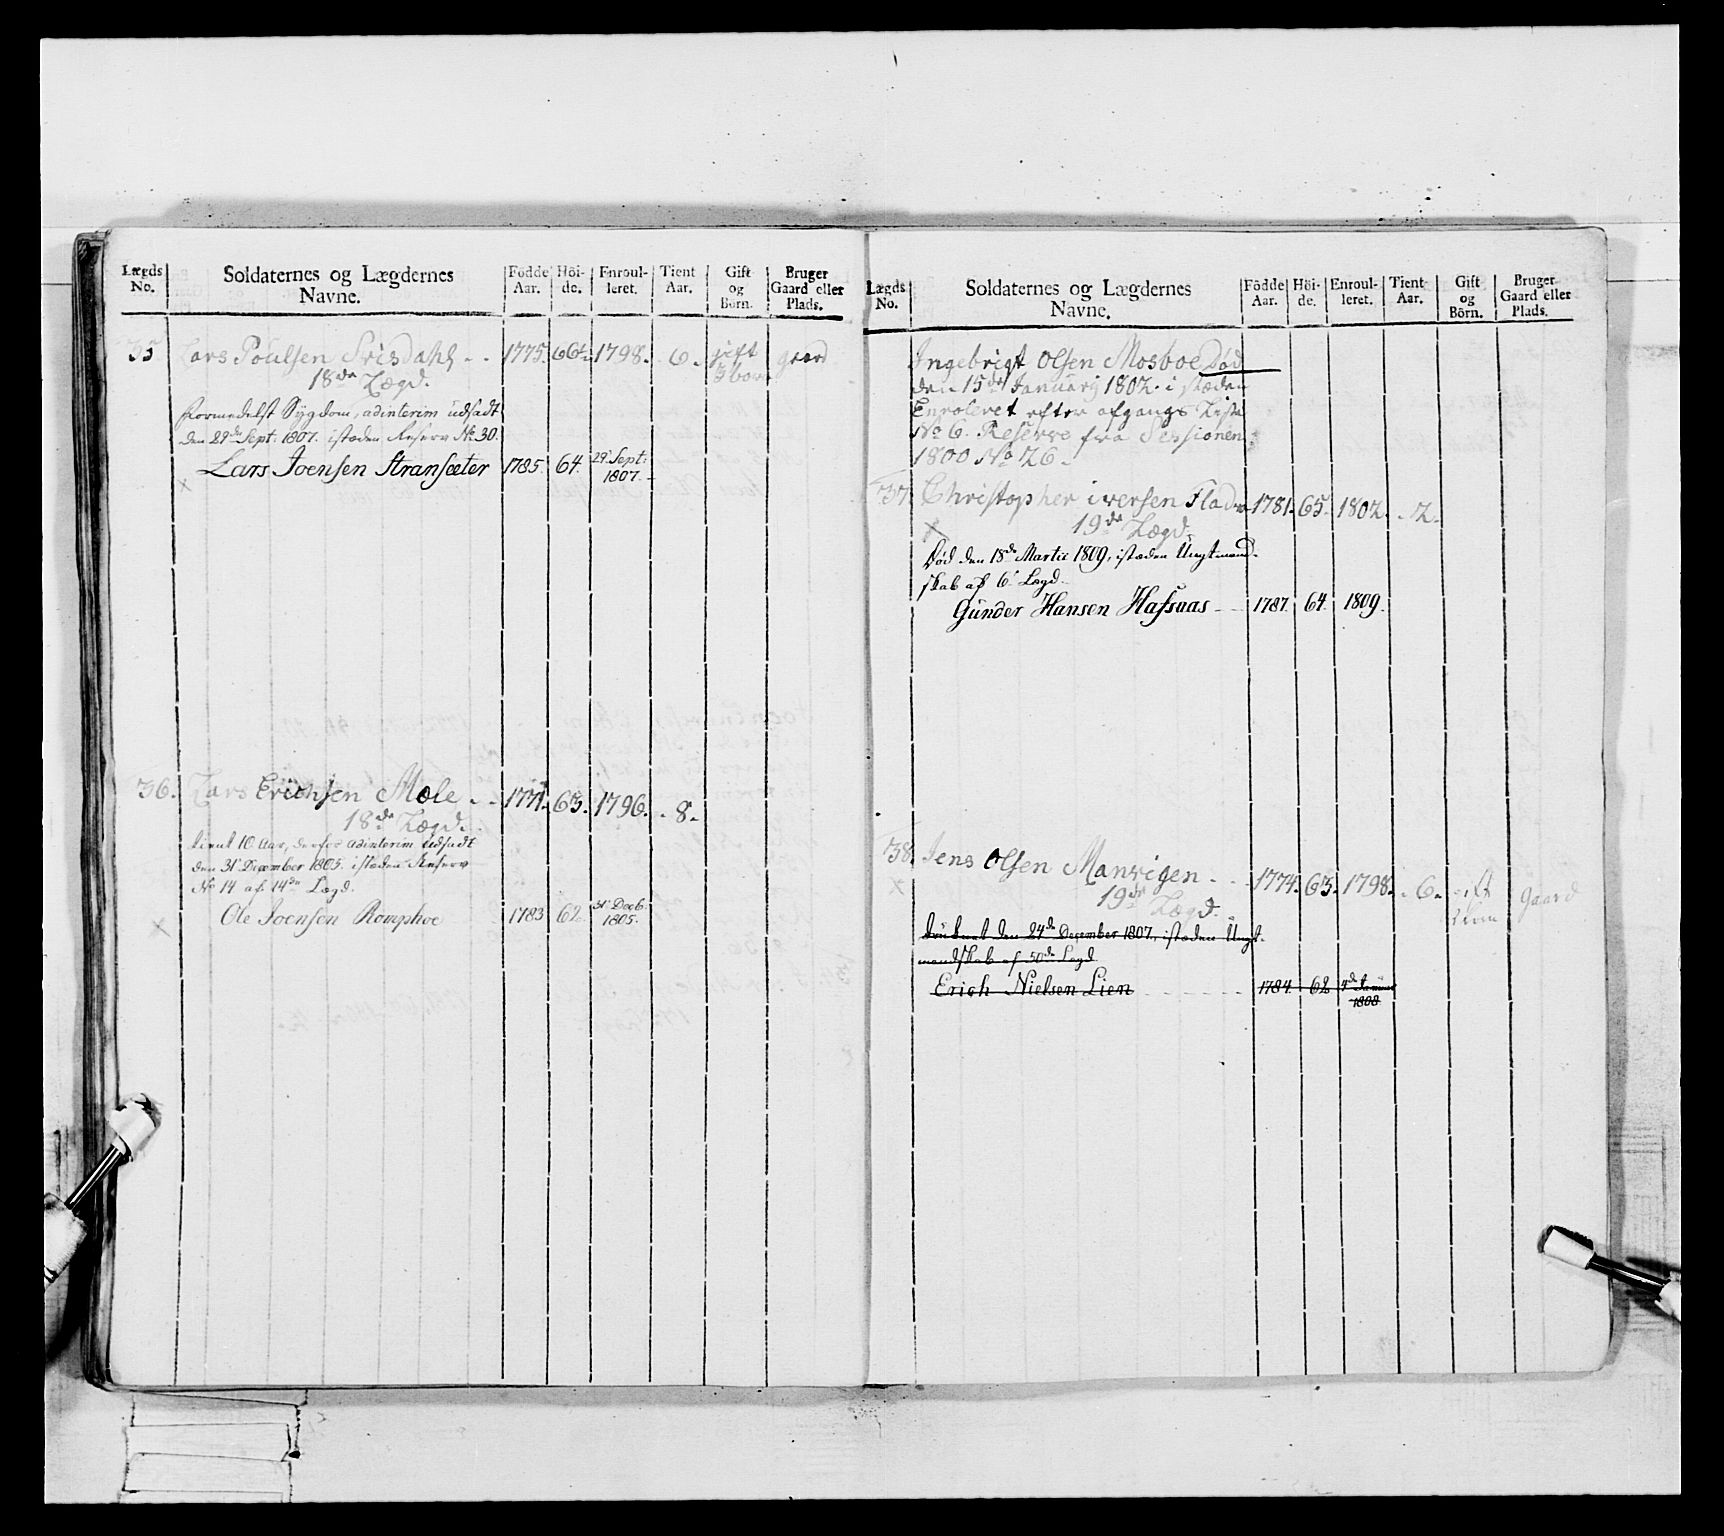 Lægds No. Soldaternes og Lægdernes Navne. Födde Aar. Höi- de. Enroul- leret. Tient Aar. Gift og Börn. Bruger Gaard eller Plads.
35 Lars Poulsen Srisdahl - - 1775. 66½. 1798. - 6. gift 3 børn gaard
18de Lægd.
Formedelst Sygdom, adinterim udsadt
den 29de Sept: 1807. istæden Reserv No 30.
Lars Joensen Stransæter 1785. 64. 29 Sept: 1807.
36. Lars Erichsen Mæle - - 1771. 63. 1796. - 8.
18de Lægd.
tient 10 Aar, derfor adinterim udsadt
den 31 December 1805. istæden Reserv
No 14 af 14de Lægd.
Ole Joensen Romphoe 1783 62 31 Decb: 1805.
Lægds No. Soldaternes og Lægdernes Navne. Födde Aar. Höi- de. Enroul- leret. Tient Aar. Gift og Börn. Bruger Gaard eller Plads.
Ingebrigt Olsen Mosboe Død
den 15de Januarij 1802. i stæden
Enroleret efter afgangs Liste
No 6. Reserve fra Sessionen
1800 No 26.
37. Christopher iversen Flad 1781. 65. 1802. - 2.
19de Lægd.
Død den 18de Martii 1809, istæden Ungtmand-
skab af 6 Lægd.
Gunder Hansen Hafsaas - - 1787. 64. 1809.
38. Jens Olsen Manvigen - - 1774. 63. 1798. - 6. gift 1 barn gaard
19de Lægd.
den 24de December 1807, istæden Ungt-
mandskab af 50de Lægd
Erich Nielsen Lien 1784. 62 4de Januar 1808